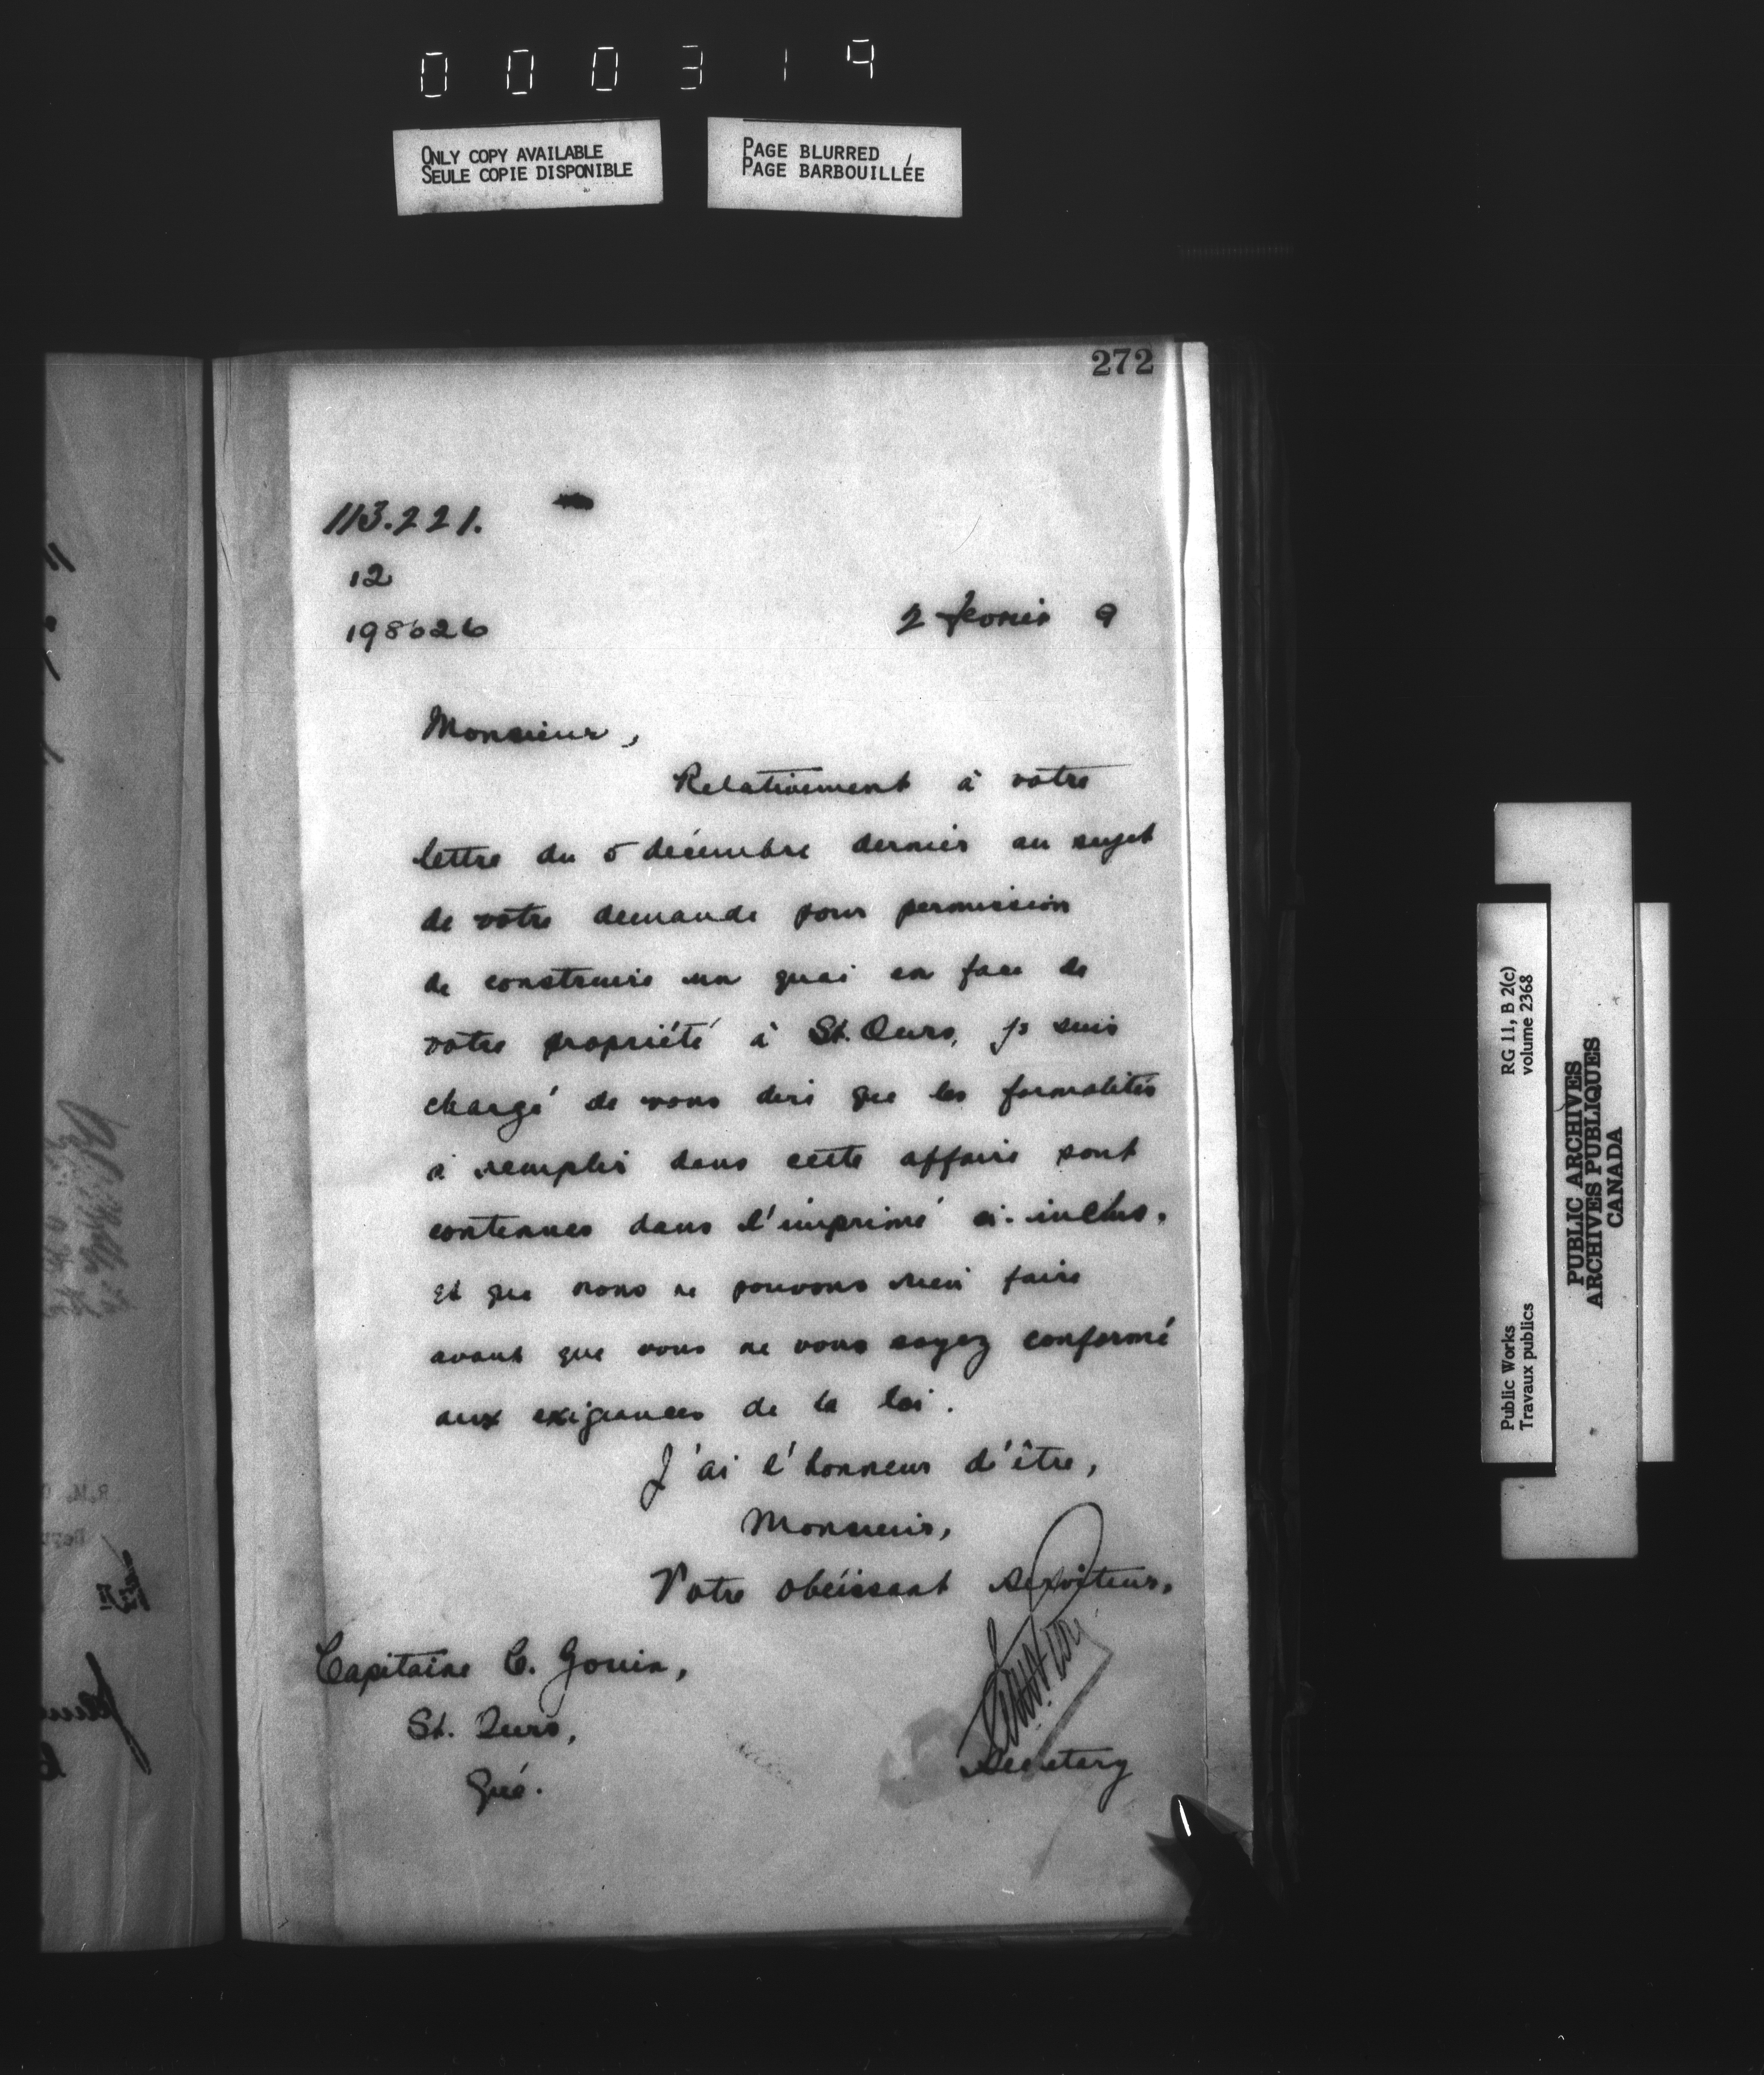 000319
ONLY COPY AVAILABLE
SEULE COPIE DISPONIBLE
PAGE BLURRED
PAGE BARBOUILLÉE
272
113.221.
12
198626
2 février 9
Monsieur,
Relativement à votre
lettre du 5 décembre dernier au sujet
de votre demande pour permission
de construire un quai en face de
votre propriété à St. Ours, je suis
chargé de vous dire que les formalités
à remplir dans cette affaire sont
contenues dans l'imprimé ci-inclus,
et que nous ne pouvons rien faire
avant que vous ne vous soyez conformé
aux exigeances de la loi.
J'ai l'honneur d'être,
Monsieur,
Votre obéissant serviteur,
Secretary
Capitaine C. Gouin,
St. Ours,
Qué.
RG 11, B 2(c)
volume 2368
Public Works
Travaux publics
PUBLIC ARCHIVES
ARCHIVES PUBLIQUES
CANADA